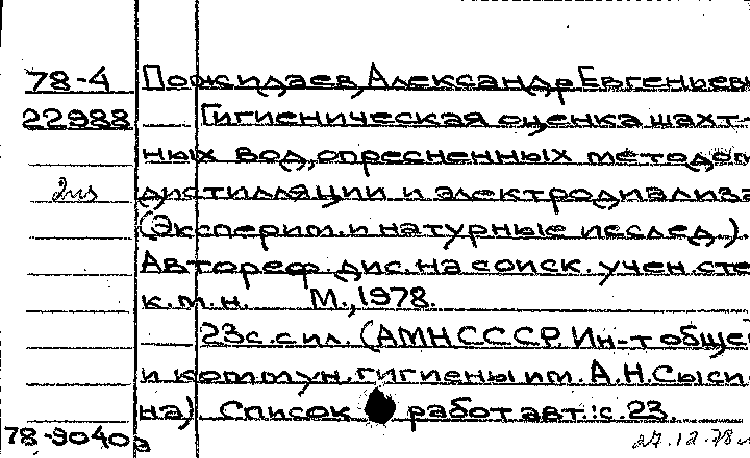 78-4 Пожидаев, Александр Евгеньев
22988 Гигиеническая оценка шахт-
ных вод, опресненных методом
дистилляции и электродиализа
(Эксперим. и натурные исслед.).
Автореф. дис. на соиск. учен. сте
к.т.н. М., 1978.
23с. с ил. (АМН СССР. Ин-т общей
и коммун. гигиены им. А.Н.Сыси
на). Список работ авт.: с. 23.
78-9040а 27.12.78